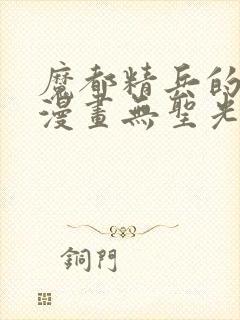 魔都精兵的
漫畫無聖光
銅門